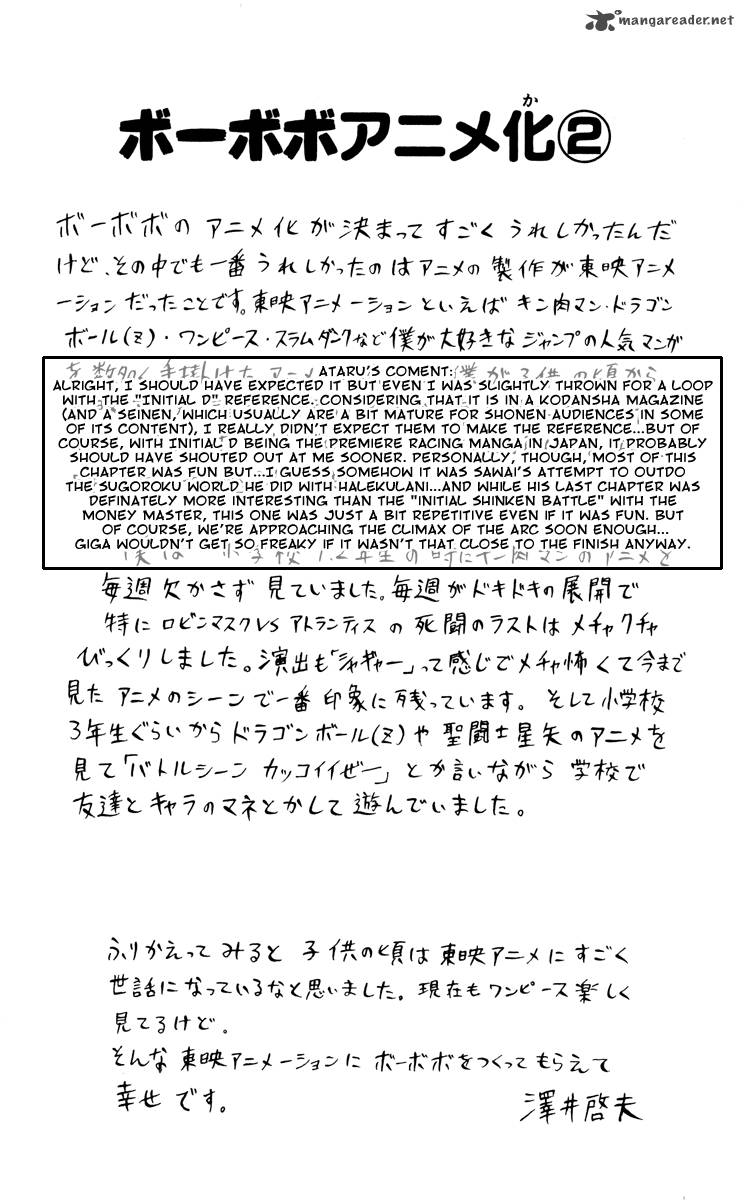 mangareader.net
か
ボーボボアニメ化②
ボーボボの アニメ化が決まって すごく うれしかったんだ
けど、その中でも一番うれしかったのはアニメの製作が東映アニメ
ーションだったことです。東映アニメーションといえば キン肉マン・ドラゴン
ボール(Z)・ワンピース・スラムダンクなど僕が大好きなジャンプの人気マンガ
を数多く手掛けたアニメ 僕が子供の頃から
ATARU'S COMENT:
ALRIGHT, I SHOULD HAVE EXPECTED IT BUT EVEN I WAS SLIGHTLY THROWN FOR A LOOP
WITH THE "INITIAL D" REFERENCE. CONSIDERING THAT IT IS IN A KODANSHA MAGAZINE
(AND A SEINEN, WHICH USUALLY ARE A BIT MATURE FOR SHONEN AUDIENCES IN SOME
OF ITS CONTENT), I REALLY DIDN'T EXPECT THEM TO MAKE THE REFERENCE...BUT OF
COURSE, WITH INITIAL D BEING THE PREMIERE RACING MANGA IN JAPAN, IT PROBABLY
SHOULD HAVE SHOUTED OUT AT ME SOONER. PERSONALLY, THOUGH, MOST OF THIS
CHAPTER WAS FUN BUT...I GUESS SOMEHOW IT WAS SAWAI'S ATTEMPT TO OUTDO
THE SUGOROKU WORLD HE DID WITH HALEKULANI...AND WHILE HIS LAST CHAPTER WAS
DEFINATELY MORE INTERESTING THAN THE "INITIAL SHINKEN BATTLE" WITH THE
MONEY MASTER, THIS ONE WAS JUST A BIT REPETITIVE EVEN IF IT WAS FUN. BUT
OF COURSE, WE'RE APPROACHING THE CLIMAX OF THE ARC SOON ENOUGH...
GIGA WOULDN'T GET SO FREAKY IF IT WASN'T THAT CLOSE TO THE FINISH ANYWAY.
僕は 小学校1.2年生の時にキン肉マンのアニメを
毎週欠かさず見ていました。毎週がドキドキの展開で
特に ロビンマスクVSアトランティスの死闘のラストはメチャクチャ
びっくりしました。演出も「シャギャー」って感じでメチャ怖くて今まで
見たアニメのシーンで一番印象に残っています。そして小学校
3年生ぐらいからドラゴンボール(Z)や聖闘士星矢のアニメを
見て「バトルシーン カッコイイぜー」とか言いながら学校で
友達とキャラのマネとかして遊んでいました。
ふりかえってみると子供の頃は東映アニメにすごく
世話になっているなと思いました。現在もワンピース楽しく
見てるけど。
そんな東映アニメーションにボーボボをつくってもらえて
幸せです。 澤井啓夫